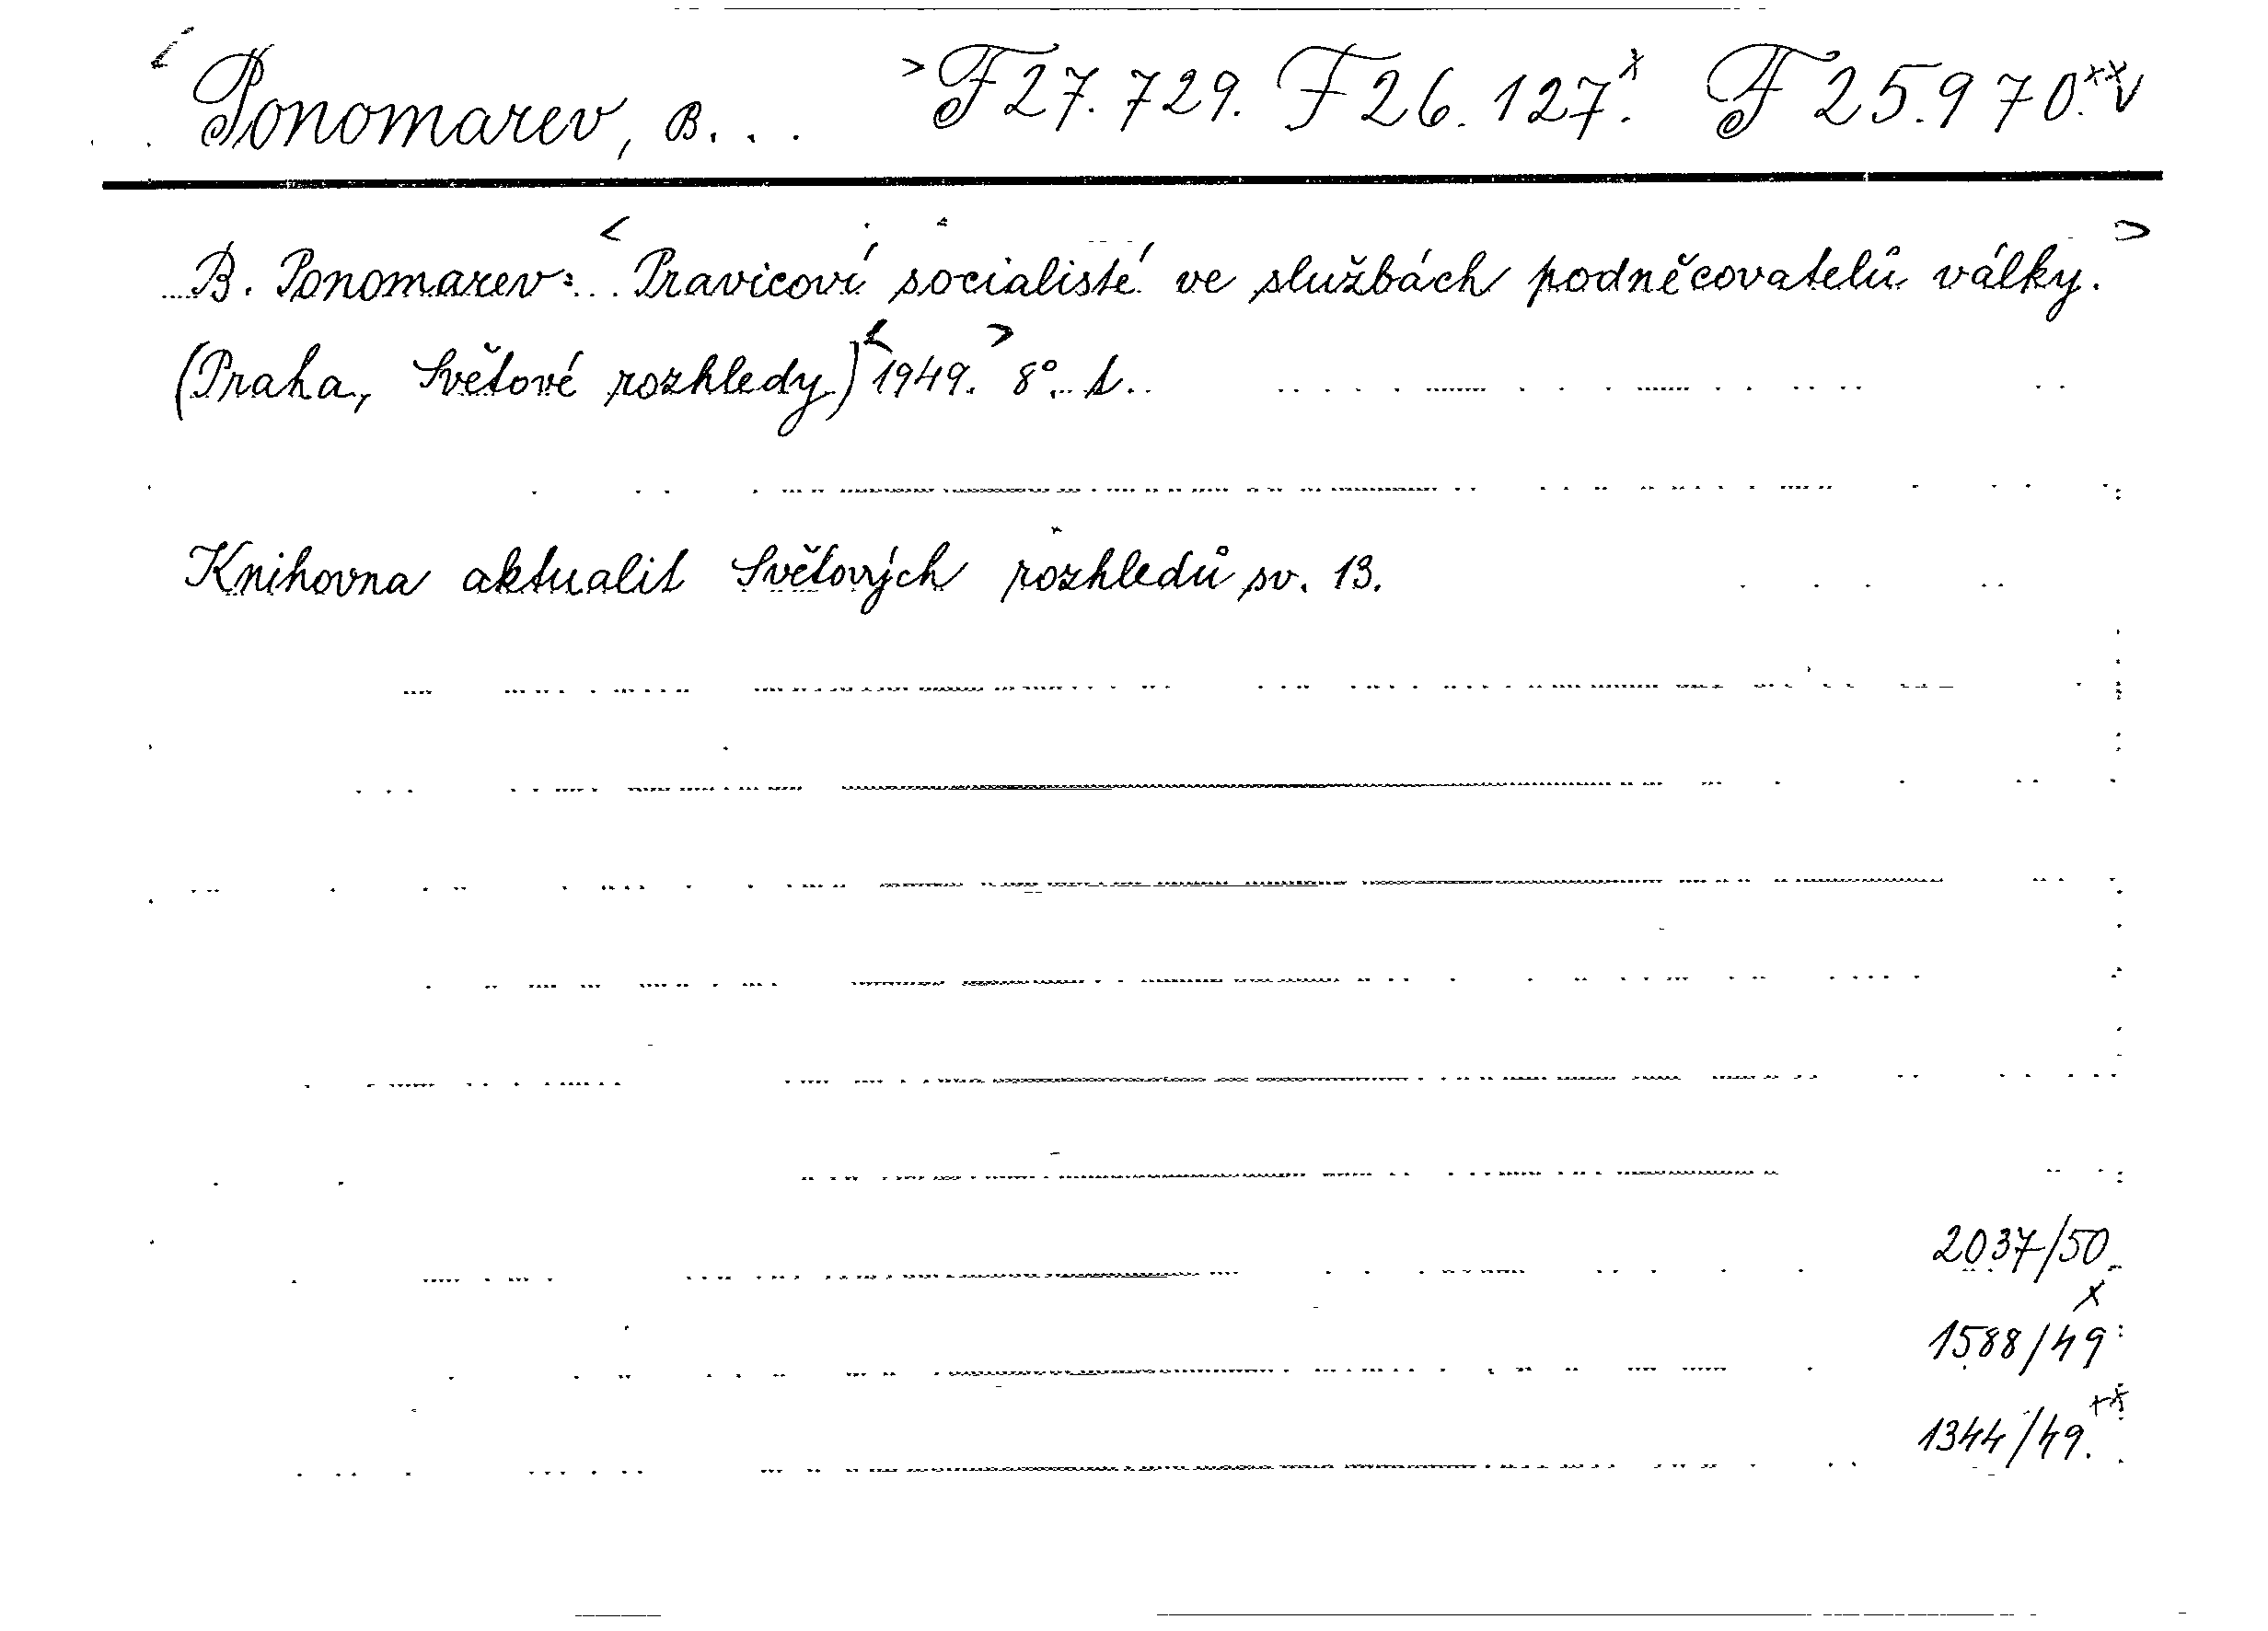 Ponomarev, B... F 27.729. F 26.127.x F 25.970.xx
B. Ponomarev: Pravicoví socialisté ve službách podněcovatelů války.
(Praha, Světové rozhledy) 1949. 8°.
Knihovna aktualit Světových rozhledů sv. 13.
2037/50.
1588/49x
1344/49.xx